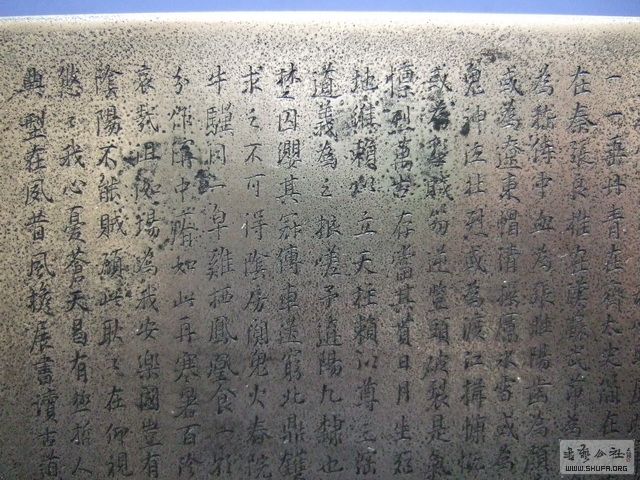 一一垂丹青在齊太史簡在
在秦張良椎在漢蘇武節為
為嵇侍中血為張睢陽齒為顏
或為遼東帽清操厲冰雪或為
鬼神泣壯烈或為渡江楫慷慨
或為擊賊笏逆豎頭破裂是氣
凜烈萬古存當其貫日月生死
地維賴以立天柱賴以尊三綱
道義為之根嗟予遘陽九隸也
楚囚纓其冠傳車送窮北鼎鑊
求之不可得陰房闃鬼火春院
牛驥同一皁雞栖鳳凰食一朝
分作溝中瘠如此再寒暑百沴
哀哉沮洳場為我安樂國豈有
陰陽不能賊顧此耿耿在仰視
悠悠我心憂蒼天曷有極哲人
典型在夙昔風檐展書讀古道
WWW.SHUFA.ORG